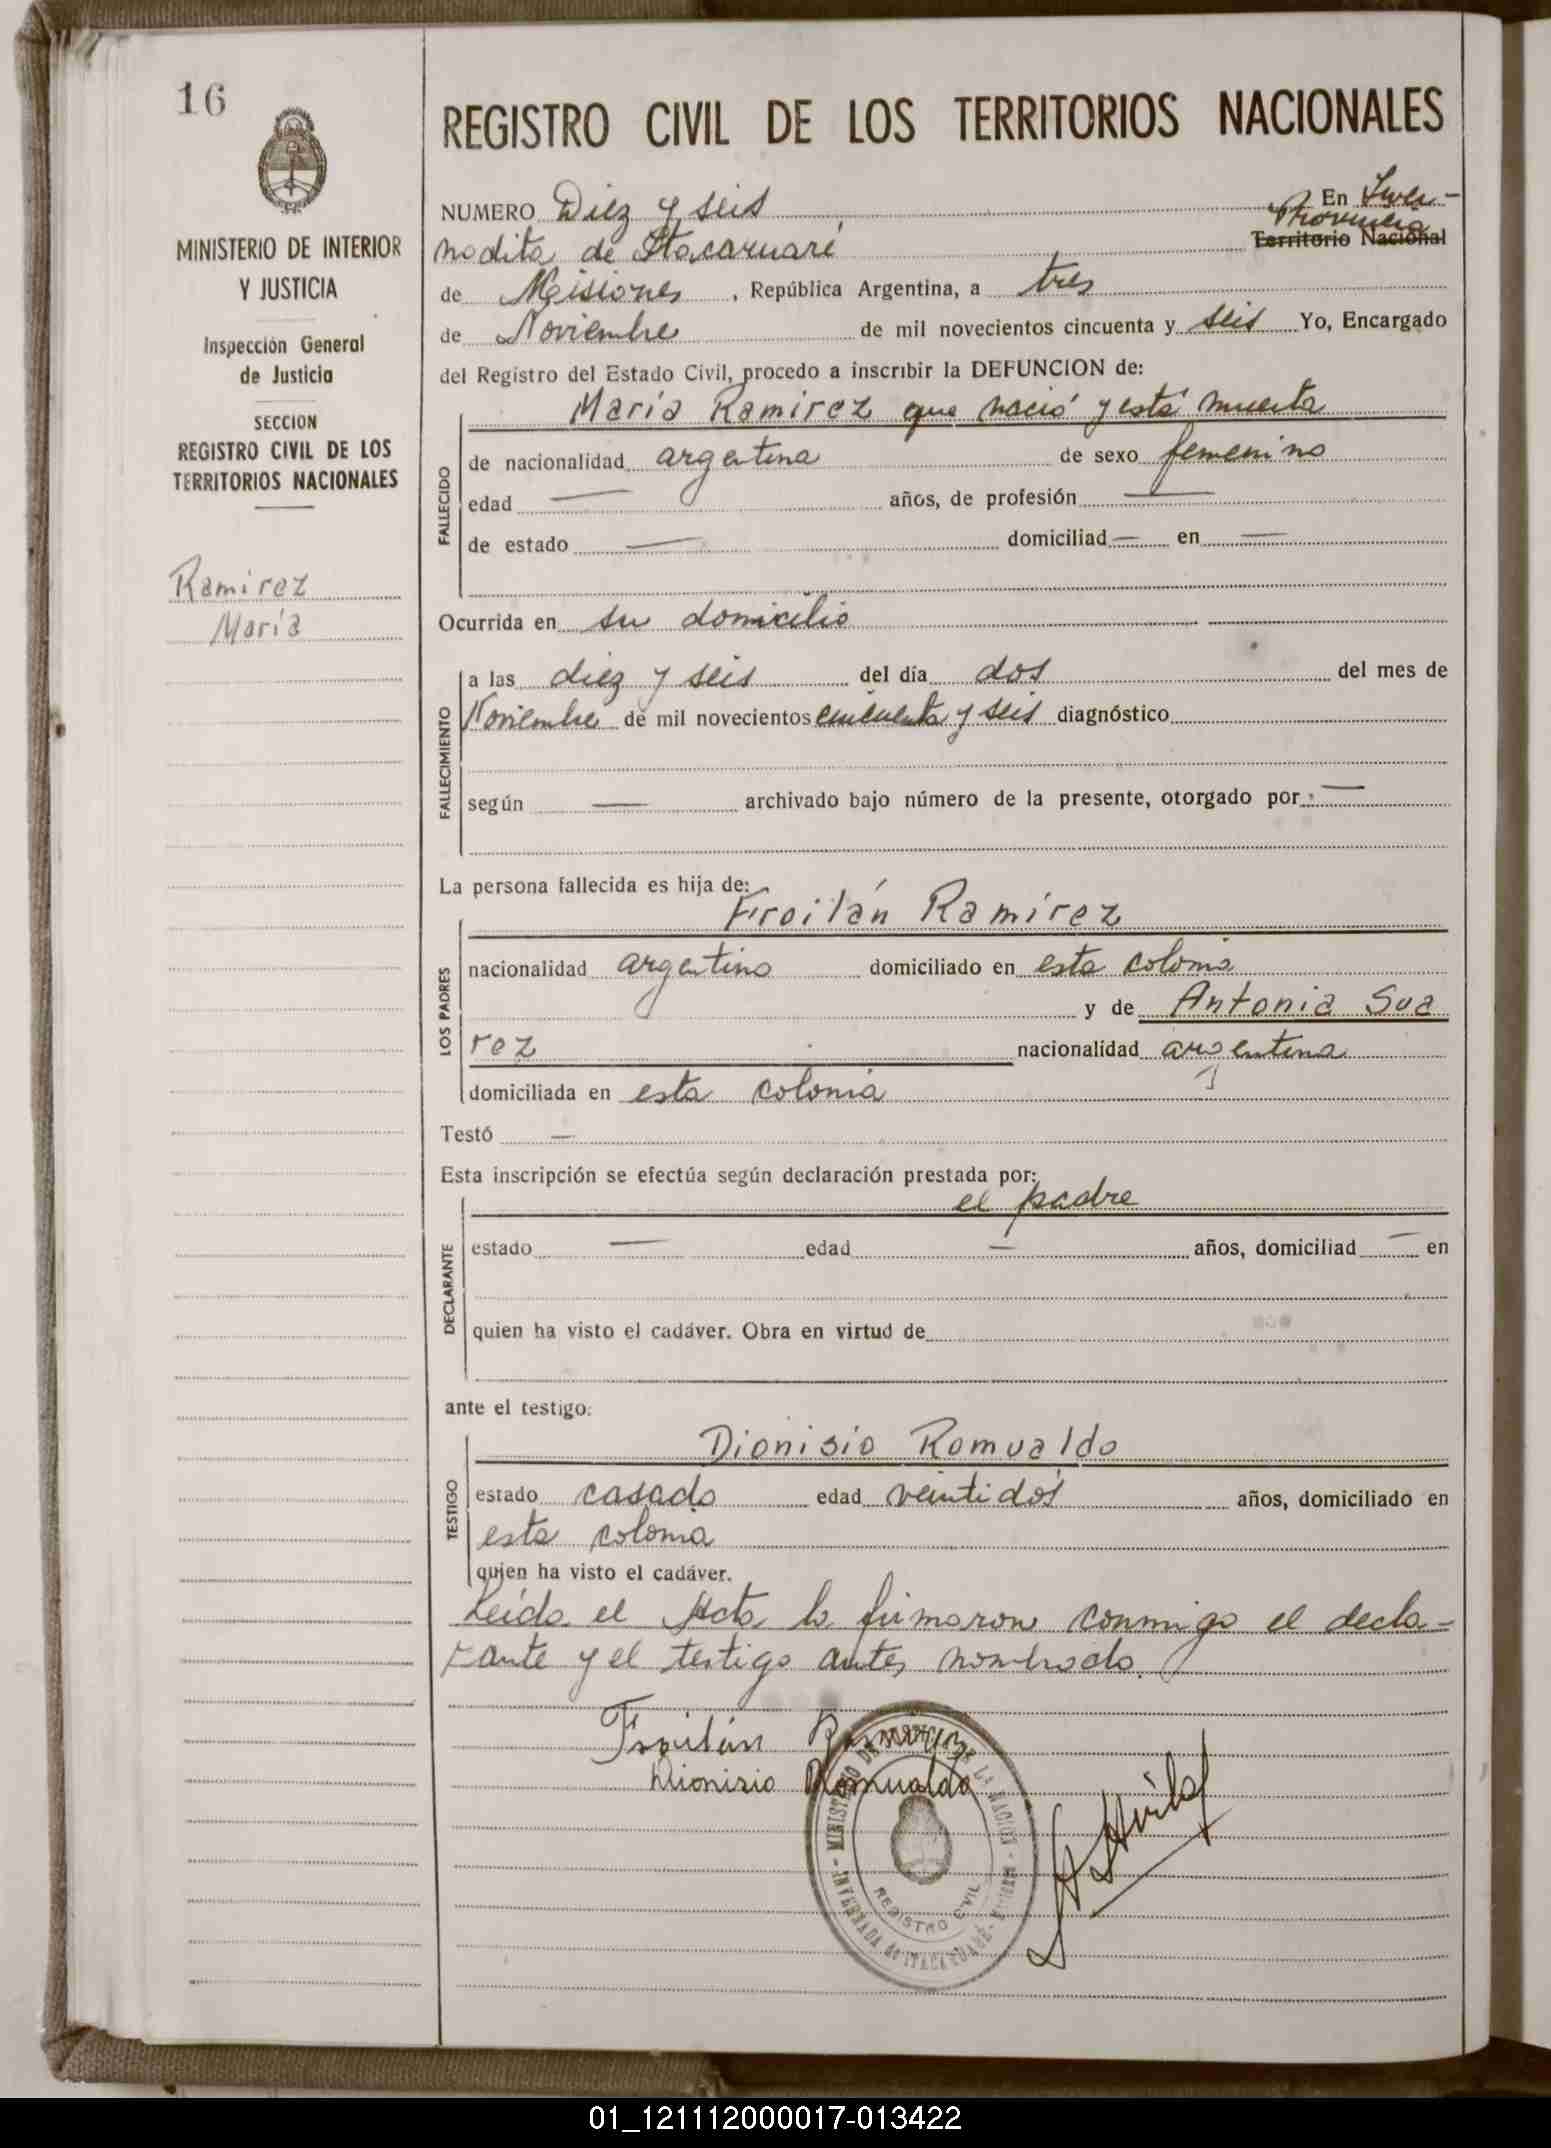 16
MINISTERIO DE INTERIOR
Y JUSTICIA
Inspección General
de Justicia
SECCION
REGISTRO CIVIL DE LOS
TERRITORIOS NACIONALES
Ramirez
María
REGISTRO CIVIL DE LOS TERRITORIOS NACIONALES
NUMERO Diez y seis En Inver-
Provincia
nadita de Itacaruaré Territorio Nacional
de Misiones, República Argentina, a tres
de Noviembre de mil novecientos cincuenta y seis Yo, Encargado
del Registro del Estado Civil, procedo a inscribir la DEFUNCION de:
María Ramirez que nació y está muerta
FALLECIDO
de nacionalidad argentina de sexo femenino
edad — años, de profesión —
de estado — domiciliad — en —
Ocurrida en su domicilio
FALLECIMIENTO
a las diez y seis del día dos del mes de
Noviembre de mil novecientos cincuenta y seis diagnóstico
según — archivado bajo número de la presente, otorgado por: —
La persona fallecida es hija de:
Froilán Ramírez
LOS PADRES
nacionalidad argentino domiciliado en esta colonia
y de Antonia Sua
rez nacionalidad argentina
domiciliada en esta colonia
Testó —
Esta inscripción se efectúa según declaración prestada por:
el padre
DECLARANTE
estado — edad — años, domiciliad — en
quien ha visto el cadáver. Obra en virtud de
ante el testigo:
Dionisio Romualdo
TESTIGO
estado casado edad veintidós años, domiciliado en
esta colonia
quien ha visto el cadáver.
Leída el Acta la firmaron conmigo el decla-
rante y el testigo antes nombrado.
Froilán Ramírez
Dionisio Romualdo
REGISTRO CIVIL
01_121112000017-013422